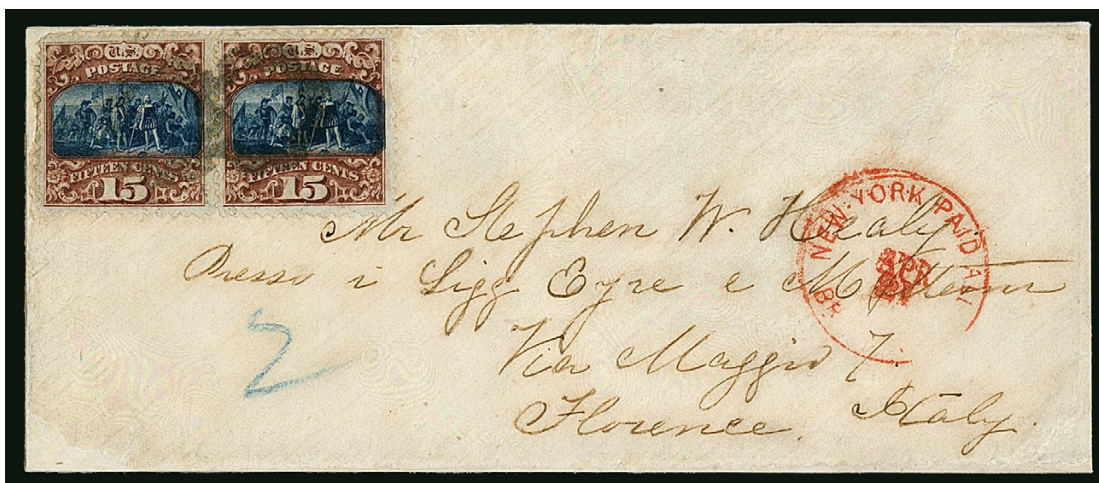 U.S.
POSTAGE
FIFTEEN CENTS
15
U.S.
POSTAGE
FIFTEEN CENTS
15
NEW-YORK PAID ALL
BR
APR
Mr Stephen W. Healy.
Presso i Sigg Eyre e
Via Maggio 7.
Florence. Italy.
2